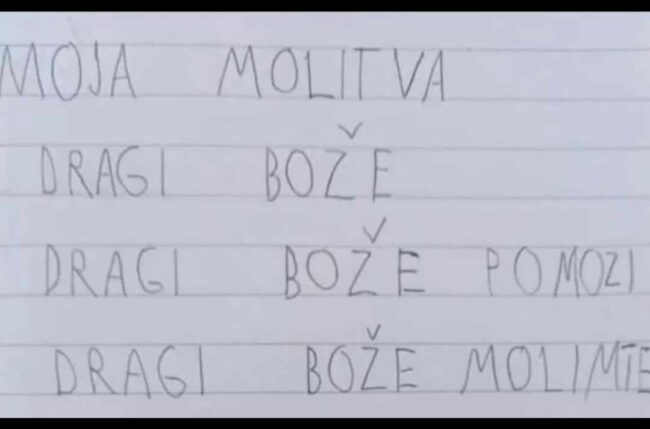 MOJA MOLITVA
DRAGI BOŽE
DRAGI BOŽE POMOZI
DRAGI BOŽE MOLIMTE